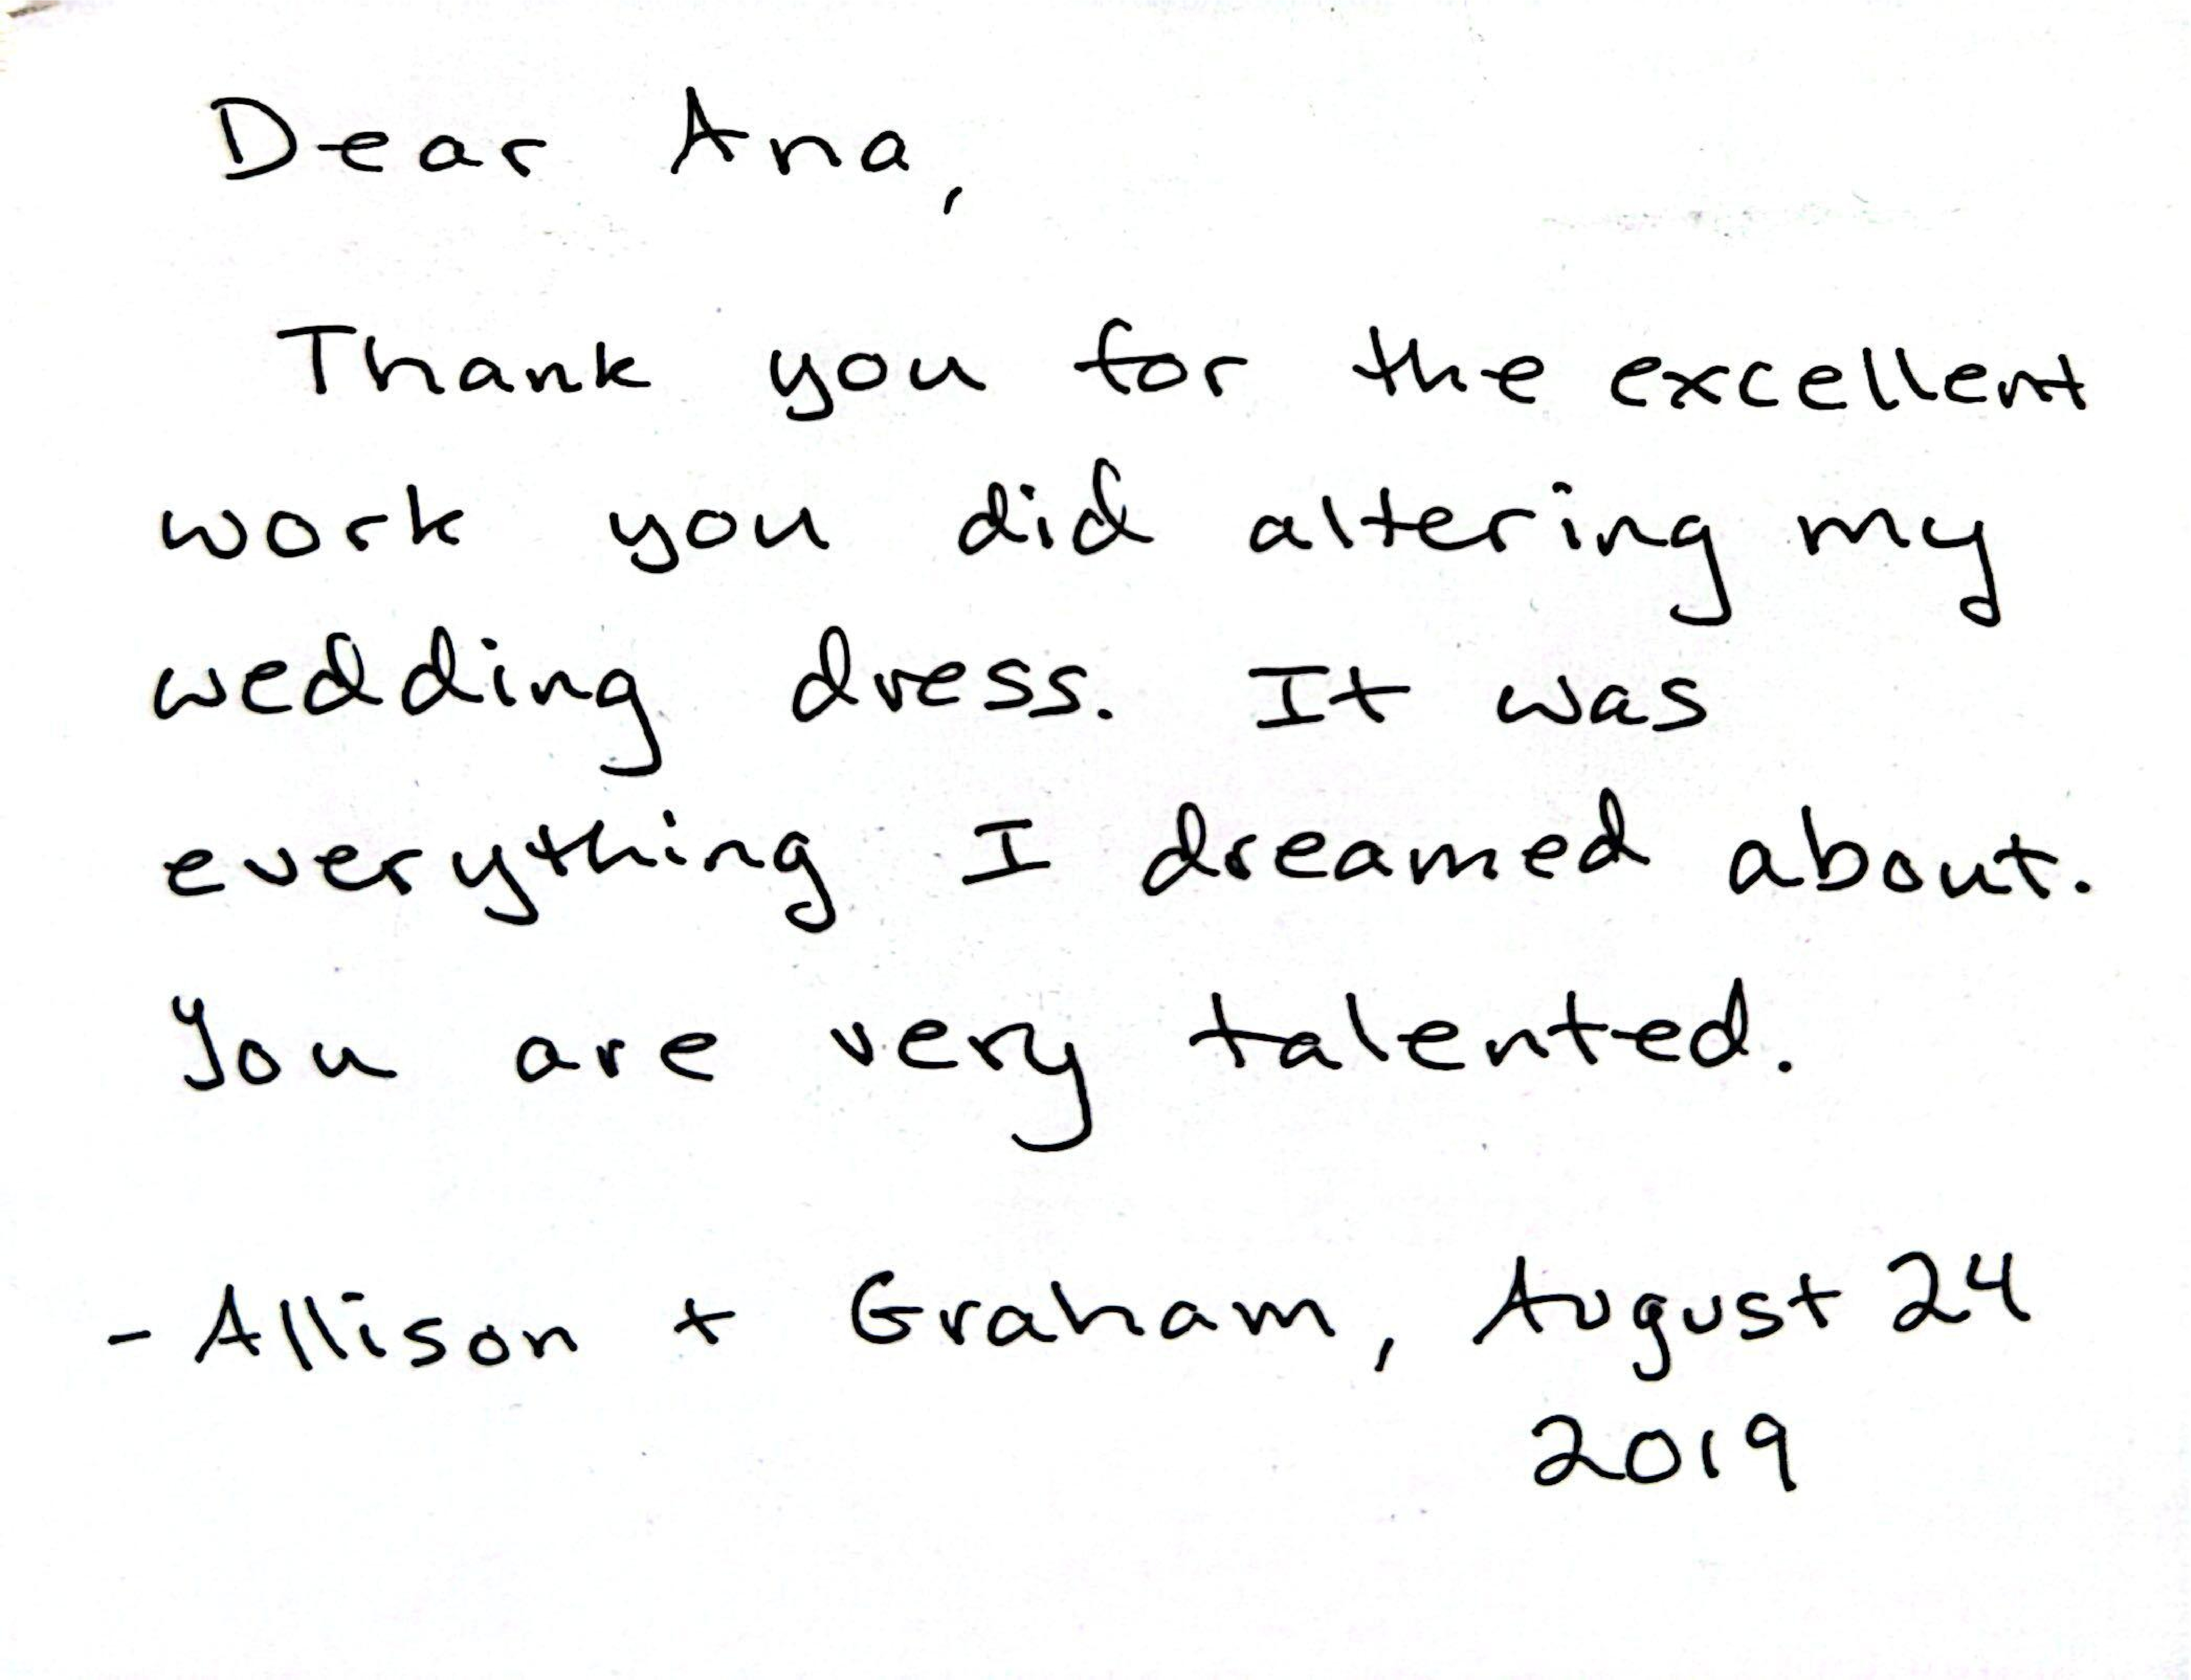 Dear Ana,
Thank you for the excellent
work you did altering my
wedding dress. It was
everything I dreamed about.
You are very talented.
- Allison + Graham, August 24
2019